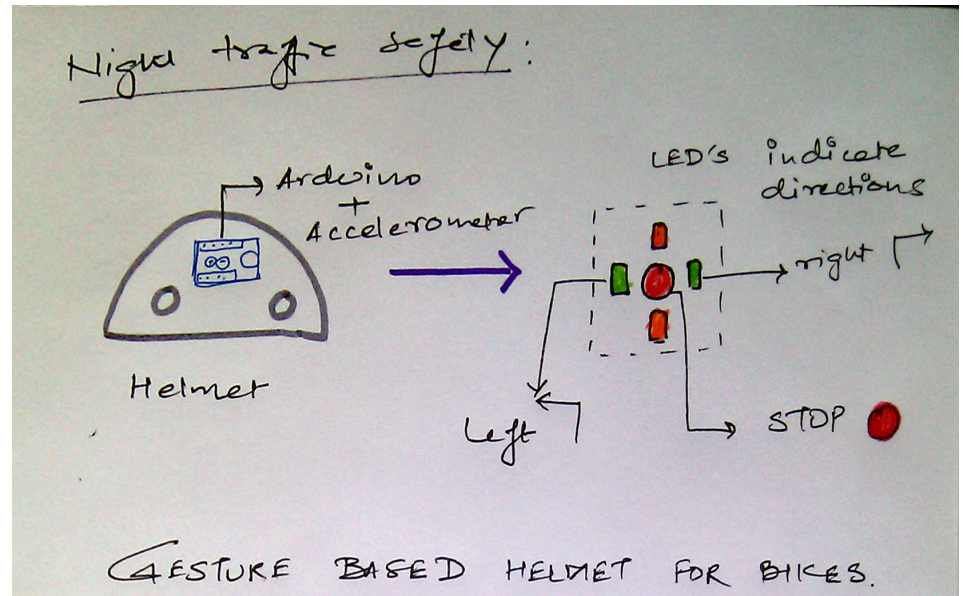 Night traffic safety:
Arduino
+
Accelerometer
Helmet
LED's indicate
directions
right
Left
STOP
GESTURE BASED HELMET FOR BIKES.